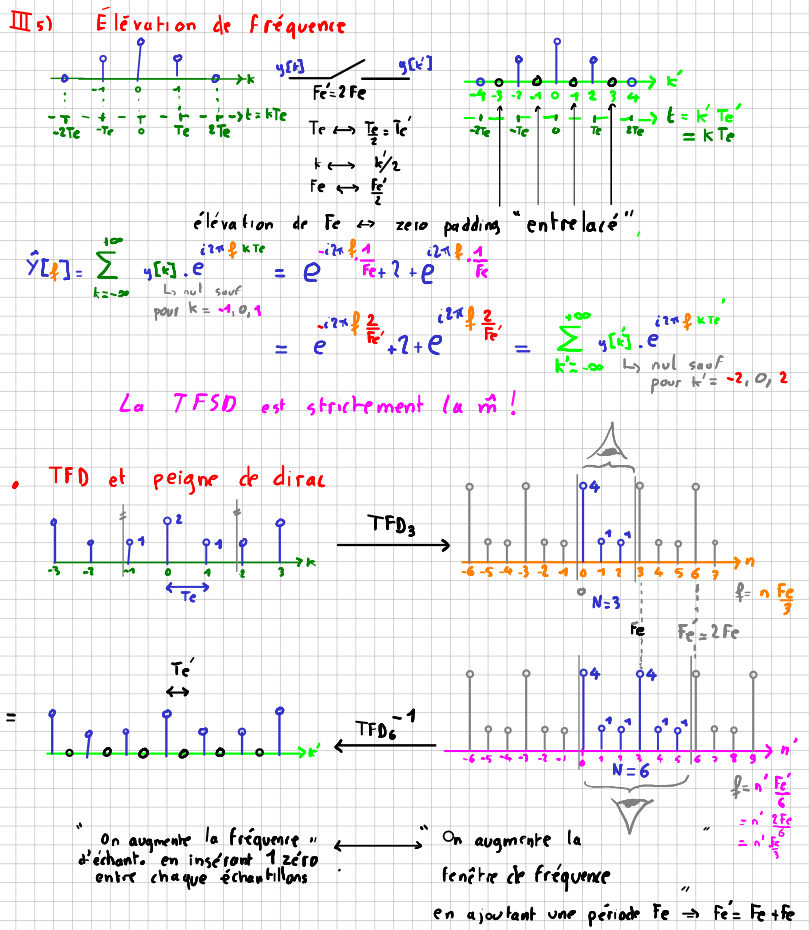 III 5) Élévation de fréquence
y[k] y[k']
Fe'=2Fe
k
-1 0 1
t=kTe
-2Te -Te 0 Te 2Te
k'
-4 -3 -2 -1 0 1 2 3 4
t = k'Te'
= kTe
-2Te -Te 0 Te 2Te
Te ↔ Te/2 = Te'
k ↔ k'/2
Fe ↔ Fe'/2
élévation de Fe ↔ zero padding "entrelacé"
Ŷ[f] = Σ_{k=-∞}^{+∞} y[k].e^{i2π f kTe} = e^{-i2π f.1/Fe} + 2 + e^{i2π f.1/Fe}
↳ nul sauf
pour k = -1, 0, 1
= e^{-i2π f 2/Fe'} + 2 + e^{i2π f 2/Fe'} = Σ_{k'=-∞}^{+∞} y[k'].e^{i2π f kTe'}
↳ nul sauf
pour k' = -2, 0, 2
La TFSD est strictement la m̂ !
• TFD et peigne de dirac
2
1 1
k
-3 -2 -1 0 1 2 3
Te
TFD₃
4
1 1
n
-6 -5 -4 -3 -2 -1 0 1 2 3 4 5 6 7
0
N=3
f= n Fe/3
Fe Fe'=2Fe
Te'
=
k'
TFD₆⁻¹
4 4
1 1 1 1
n'
-6 -5 -4 -3 -2 -1 0 1 2 3 4 5 6 7 8 9
N=6
f= n' Fe'/6
= n' 2Fe/6
= n' Fe/3
"On augmente la fréquence
d'échant. en insérant 1 zéro
entre chaque échantillons"
"On augmente la
fenêtre de fréquence
en ajoutant une période Fe" ⇒ Fe' = Fe + Fe